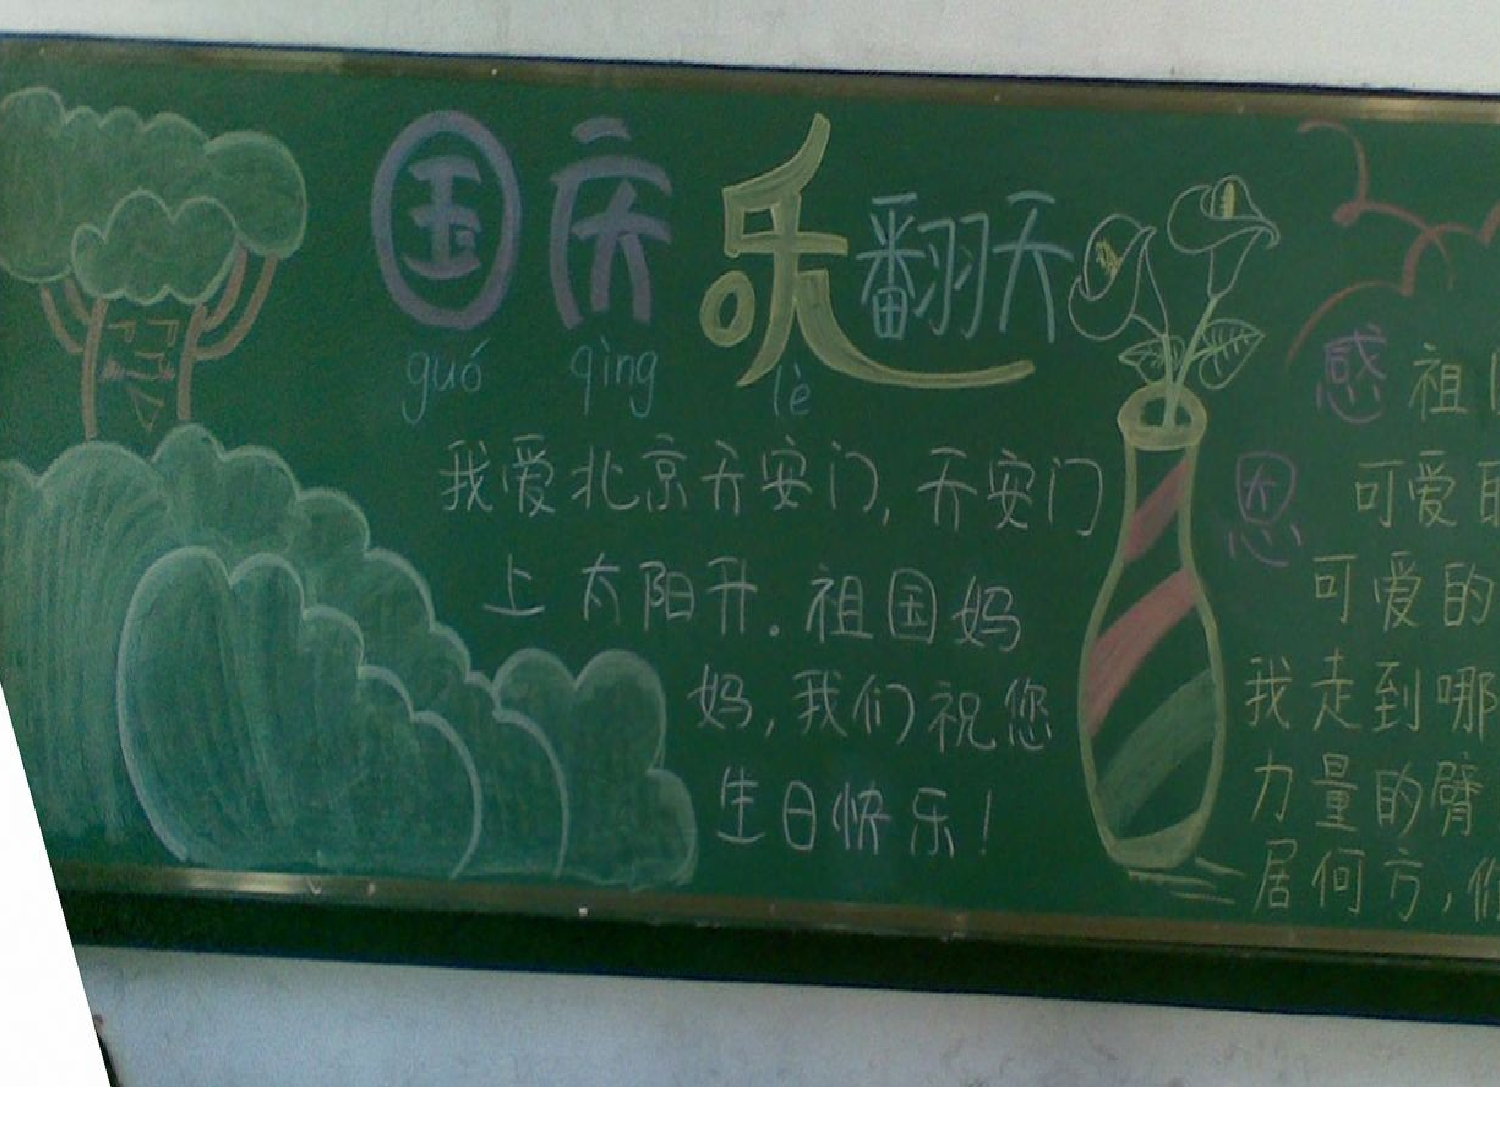 国庆乐翻天
guó qìng lè
我爱北京天安门,天安门
上太阳升.祖国妈
妈,我们祝您
生日快乐!
感恩
祖
可爱
可爱的
我走到哪
力量的臂
居何方,你